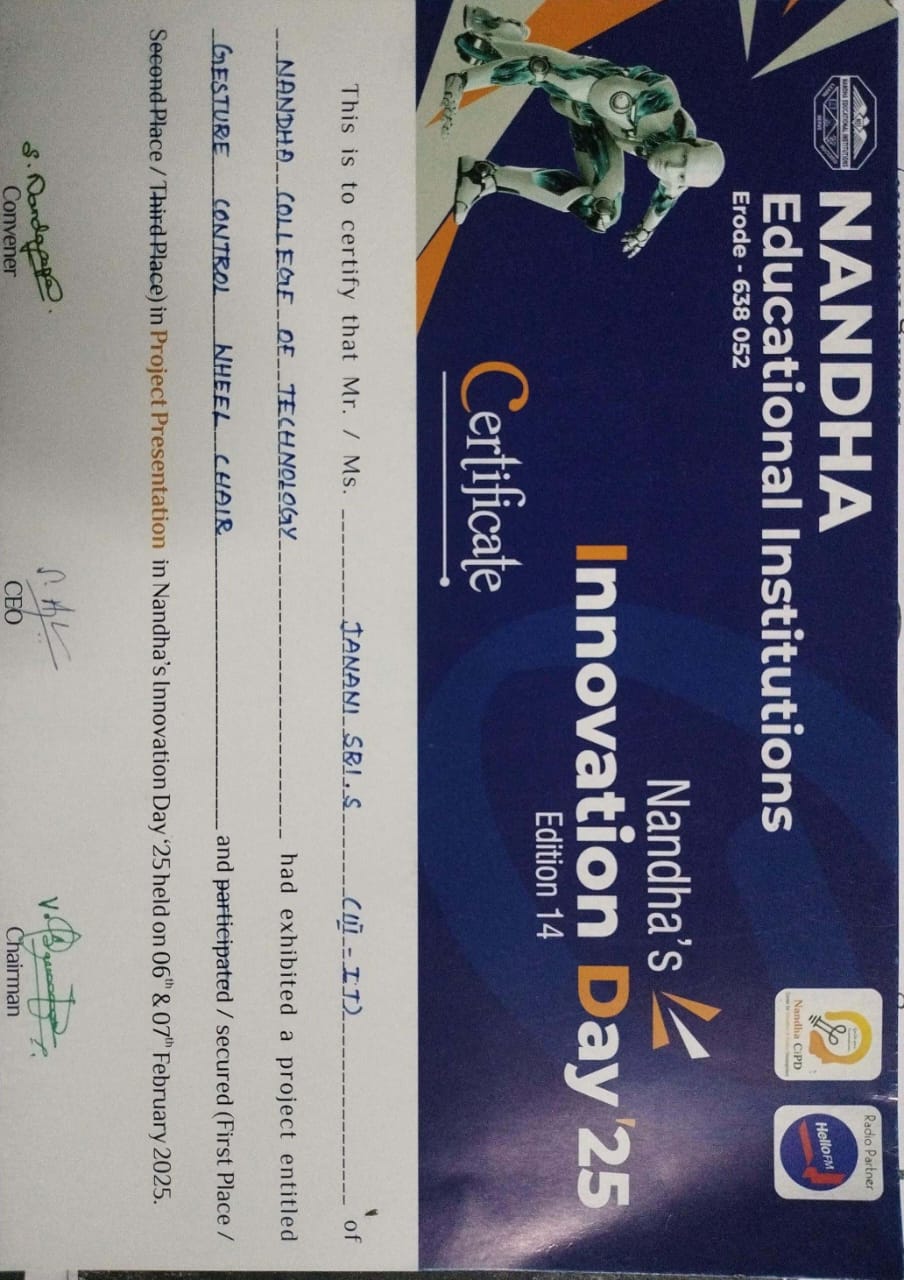 NANDHA EDUCATIONAL INSTITUTIONS
LEARN
SERVE
SUCCEED
NANDHA
Educational Institutions
Erode - 638 052
Nandha CiPD
Radio Partner
Hello FM
Nandha's
Innovation Day '25
Edition 14
Certificate
This is to certify that Mr. / Ms. JANANI SRI.S (III - IT) of
NANDHA COLLEGE OF TECHNOLOGY had exhibited a project entitled
GESTURE CONTROL WHEEL CHAIR and participated / secured (First Place /
Second Place / Third Place) in Project Presentation in Nandha's Innovation Day '25 held on 06th & 07th February 2025.
Convener
CEO
Chairman